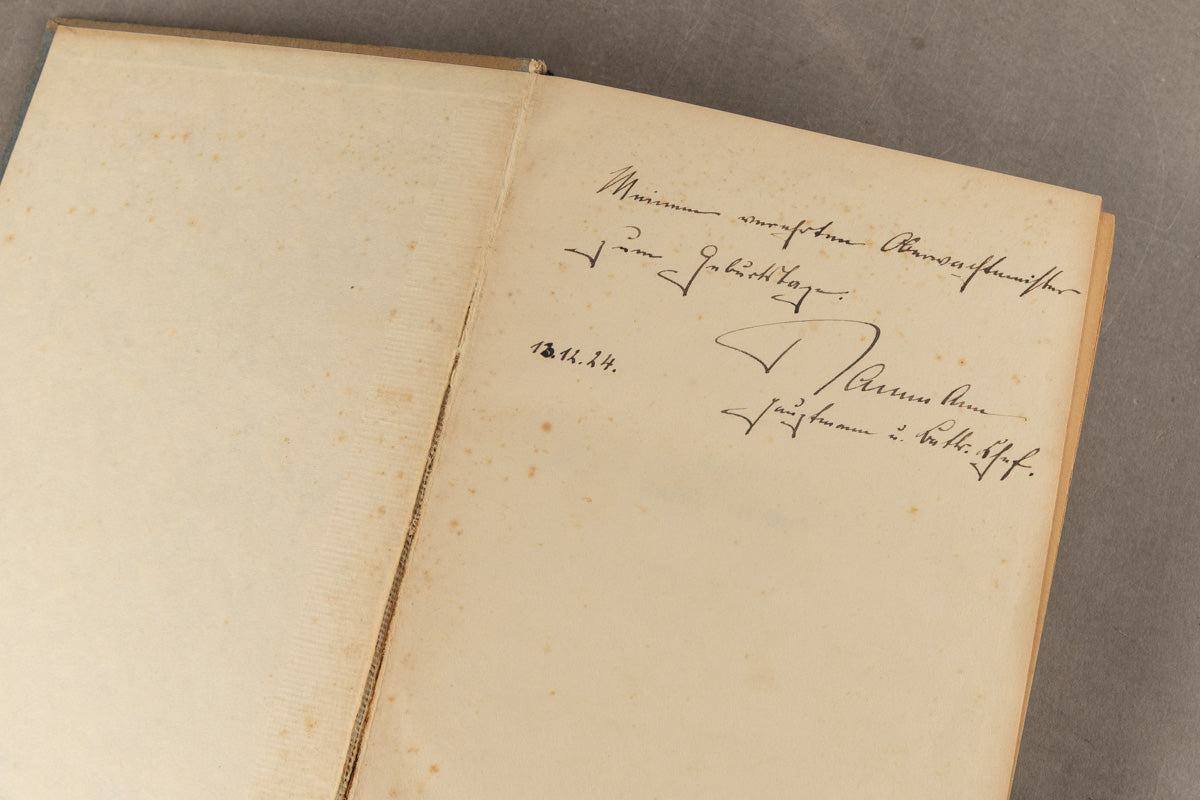 Meinem verehrten Oberwachtmeister
zum Geburtstage.
13.12.24.
Hauptmann u. Battr. Chef.